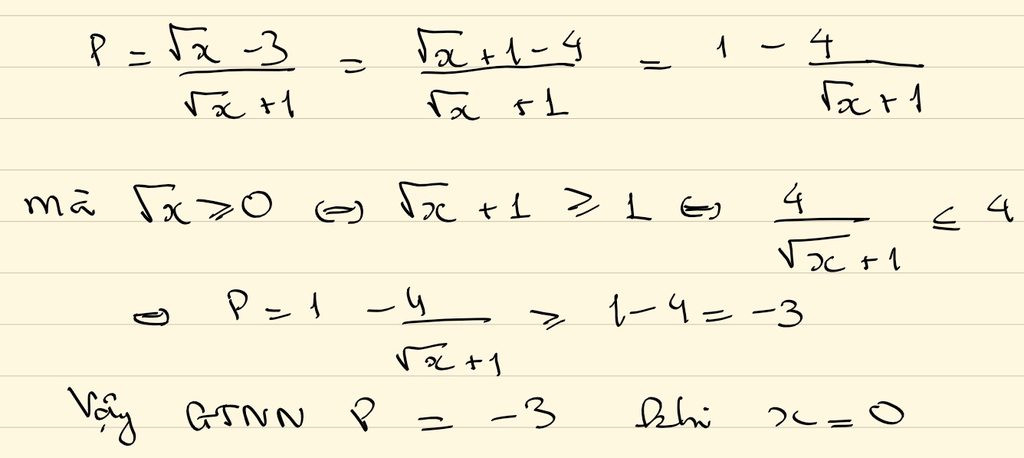 P = \frac{\sqrt{x} - 3}{\sqrt{x} + 1} = \frac{\sqrt{x} + 1 - 4}{\sqrt{x} + 1} = 1 - \frac{4}{\sqrt{x} + 1}
mà √x ⩾ 0 ⇔ √x + 1 ⩾ 1 ⇔ \frac{4}{\sqrt{x} + 1} ≤ 4
⇔ P = 1 - \frac{4}{\sqrt{x} + 1} ⩾ 1 - 4 = -3
Vậy GTNN P = -3 khi x = 0